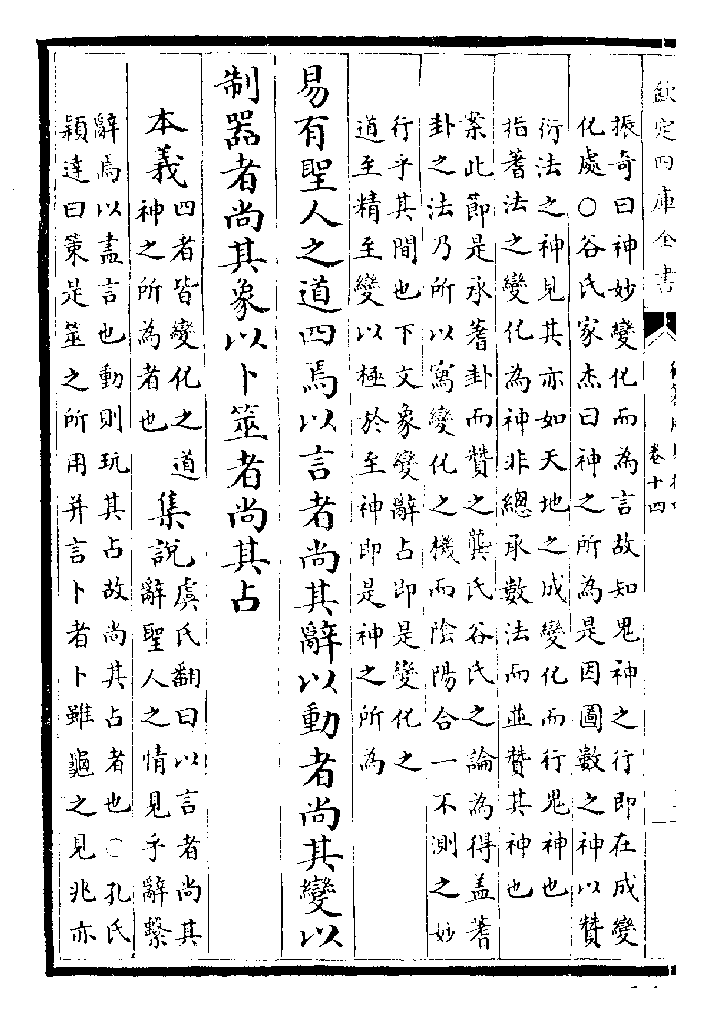 欽定四庫全書
卷十四
振奇曰神妙變化而為言故知鬼神之行即在成變
化處○谷氏家杰曰神之所為是因圖數之神以贊
衍法之神見其亦如天地之成變化而行鬼神也
指蓍法之變化為神非總承數法而並贊其神也
案此節是承蓍卦而贊之龔氏谷氏之論為得蓋蓍
卦之法乃所以寫變化之機而陰陽合一不測之妙
行乎其間也下文象變辭占即是變化之
道至精至變以極於至神即是神之所為
易有聖人之道四焉以言者尚其辭以動者尚其變以
制器者尚其象以卜筮者尚其占
本義四者皆變化之道
神之所為者也
集說虞氏翻曰以言者尚其
辭聖人之情見乎辭繫
辭焉以盡言也動則玩其占故尚其占者也○孔氏
穎達曰策是筮之所用并言卜者卜雖龜之見兆亦